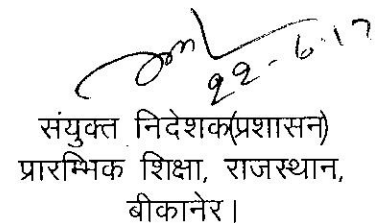 22-6-17
संयुक्त निदेशक(प्रशासन)
प्रारम्भिक शिक्षा, राजस्थान,
बीकानेर।